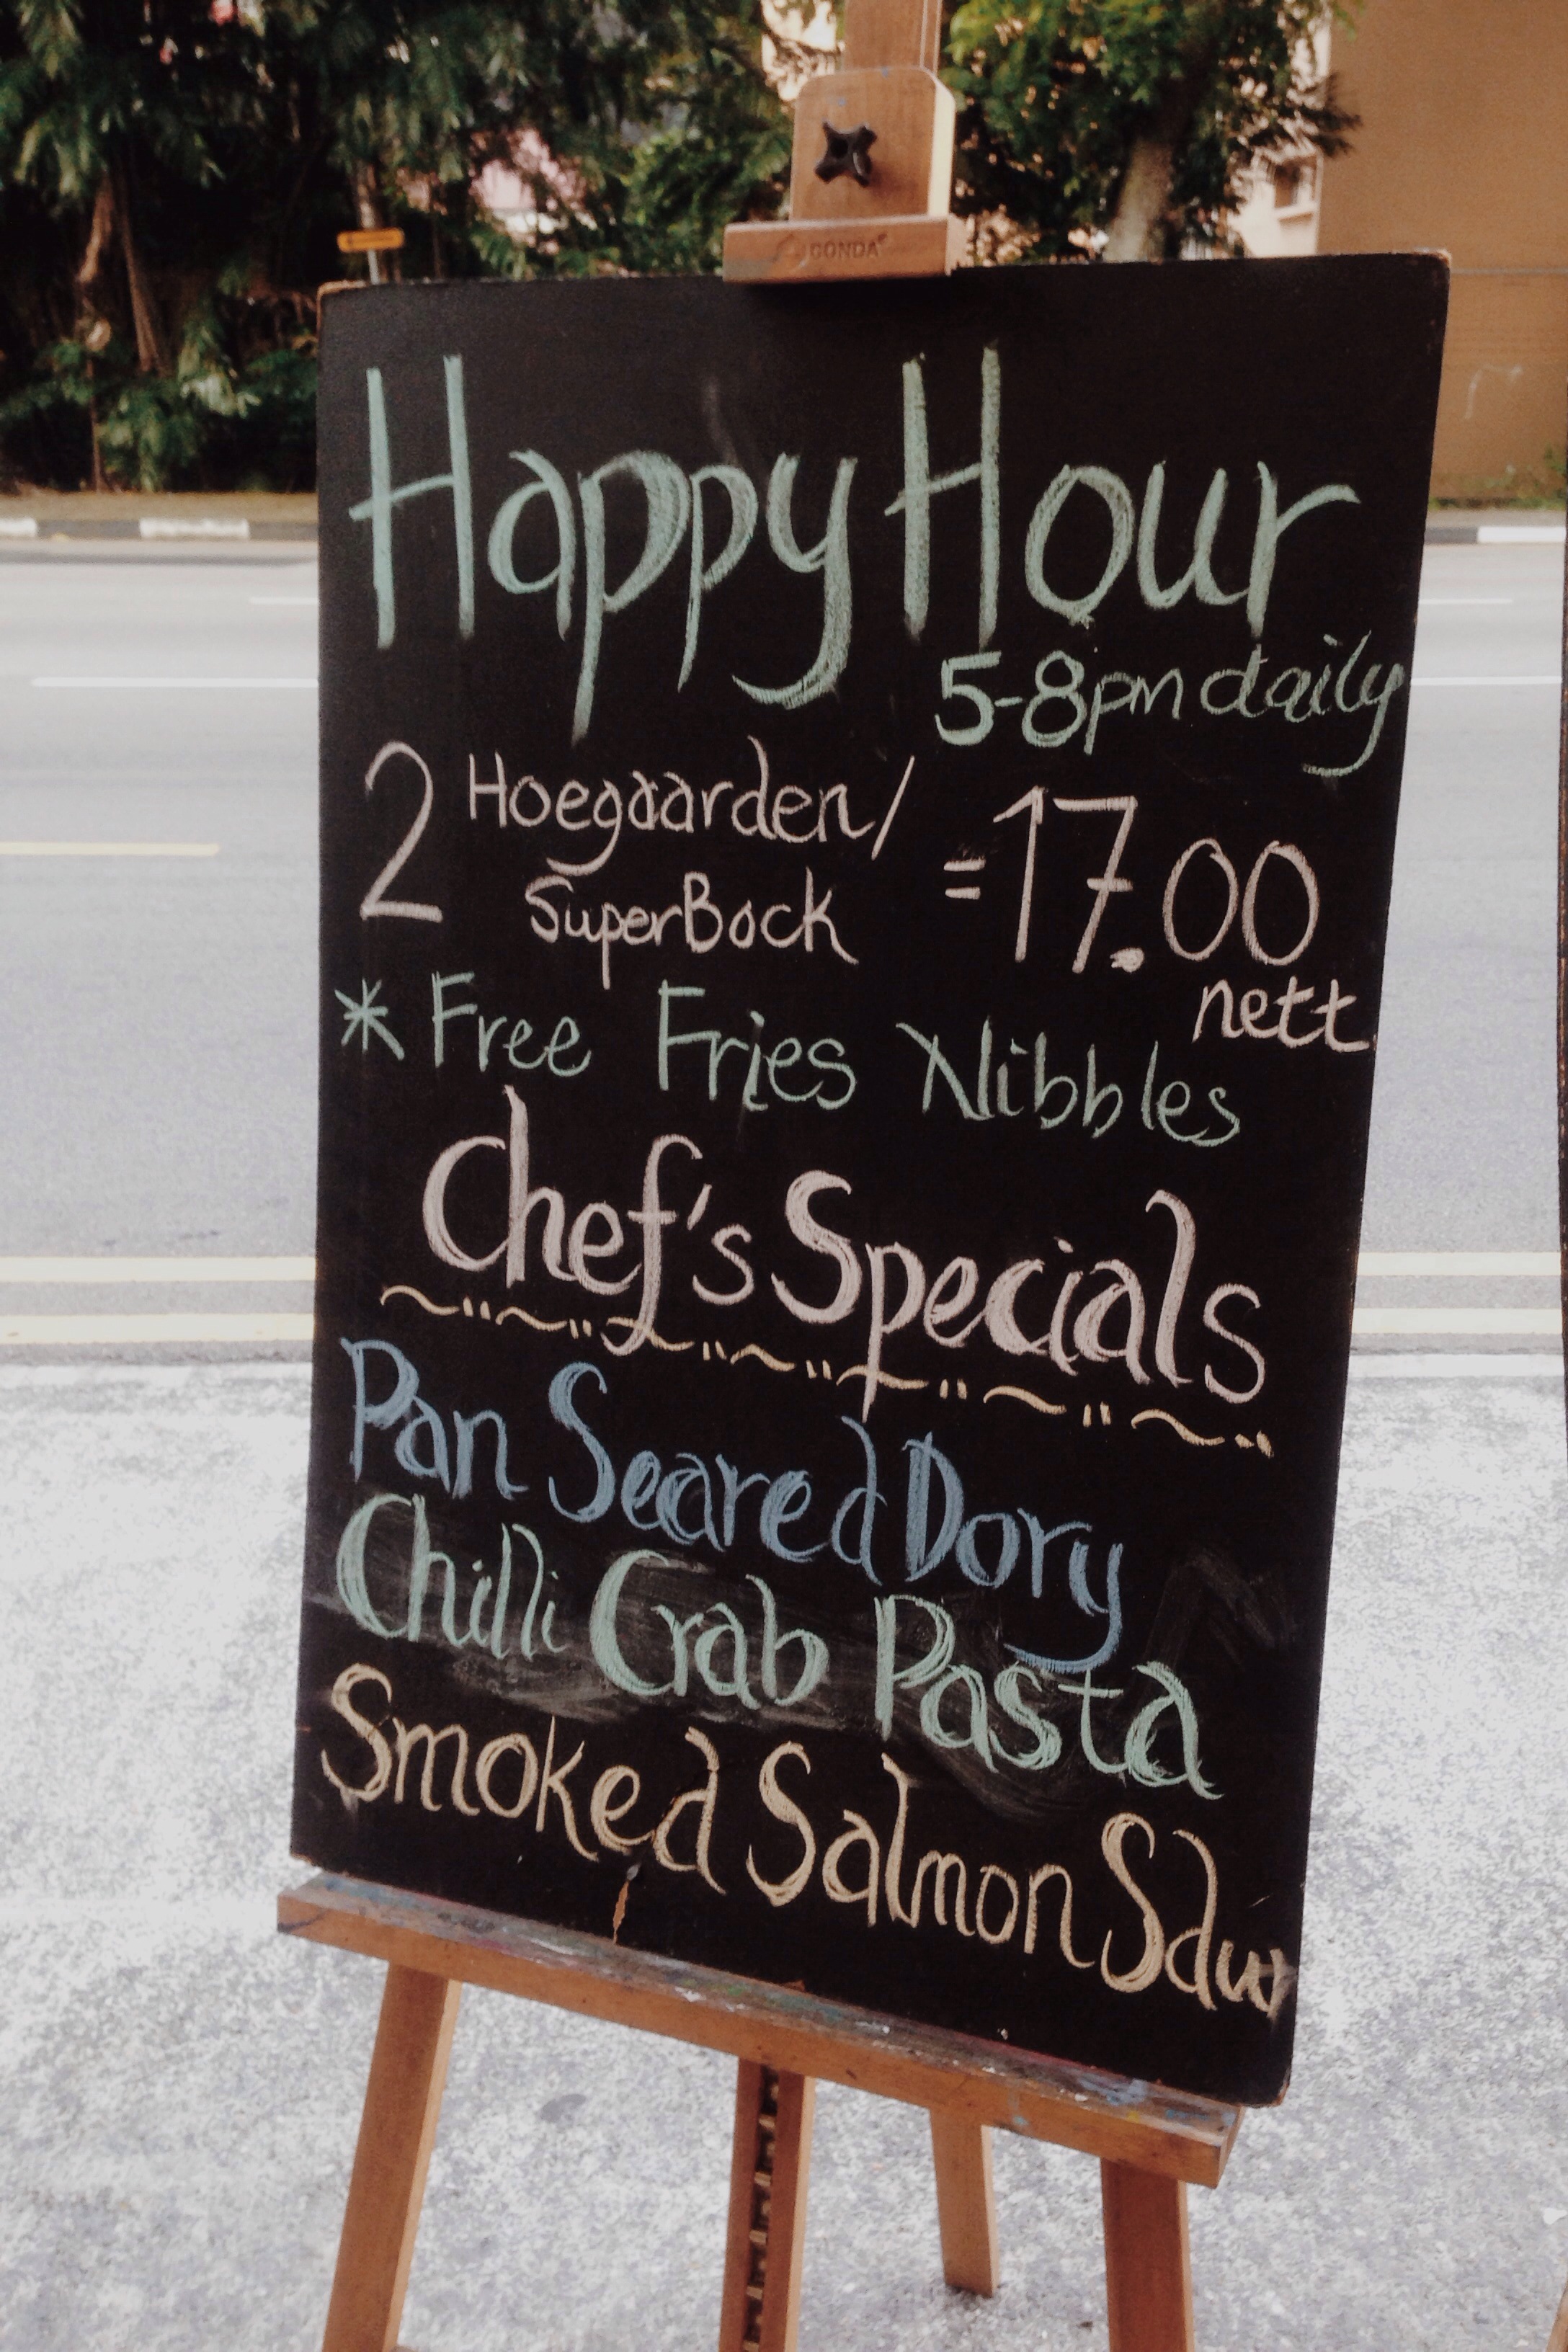 CONDA
Happy Hour
5-8pm daily
2 Hoegaarden/
SuperBock
=17.00
nett
* Free Fries Nibbles
Chef's Specials
Pan Seared Dory
Chilli Crab Pasta
Smoked Salmon